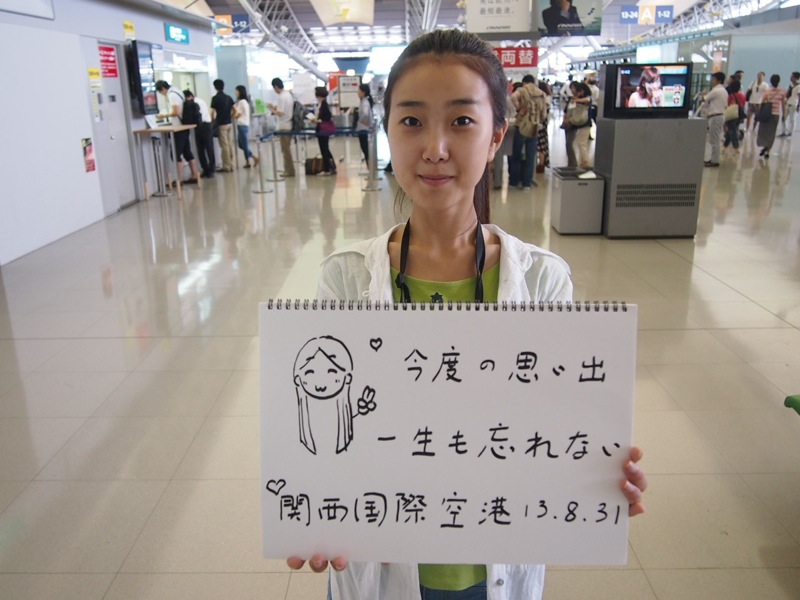 両替
13-24 A 1-12
今度の思い出
一生も忘れない
関西国際空港 13.8.31